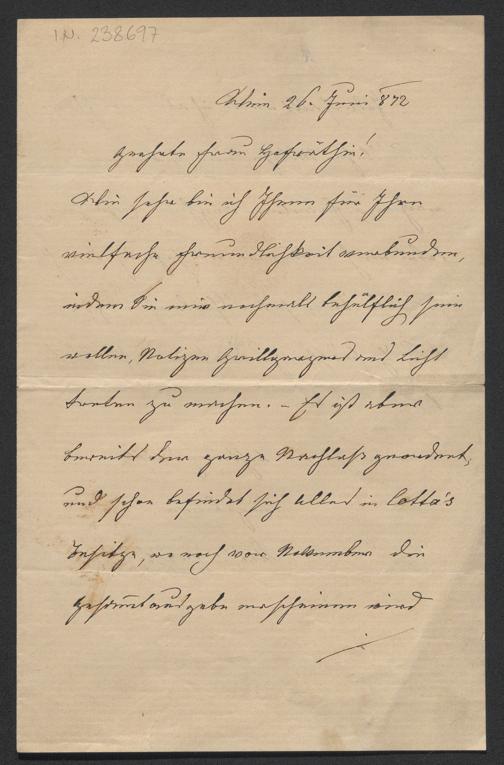 I.N. 238697
Wien 26. Juni 872
Geehrte Frau Hofräthin!
Wie sehr bin ich Ihnen für Ihre
vielfache Freundlichkeit verbunden,
indem Sie mir nochmals behülflich sein
wollen, Notizen Grillparzers ans Licht
treten zu machen. – Es ist aber
bereits der ganze Nachlaß geordnet,
und schon befindet sich Alles in Cotta's
Besitze, wo noch vor November die
Gesam̄tausgabe erscheinen wird